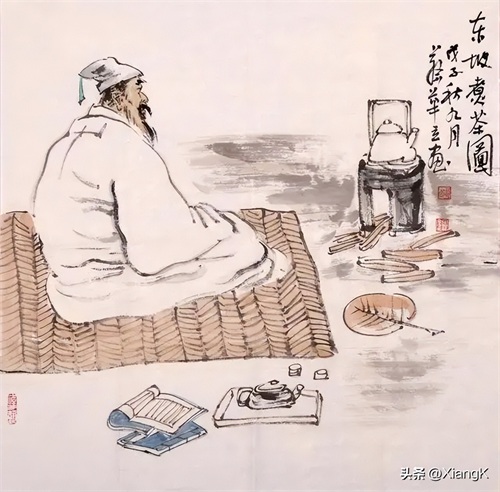 东坡煮茶圖
戊子秋九月
蔡華立画
头条 @XiangK